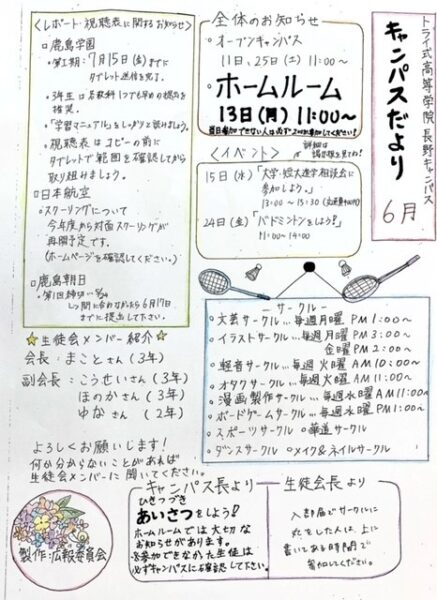 トライ式高等学院 長野キャンパス
キャンパスだより
6月
全体のお知らせ
・オープンキャンパス
11日、25日(土) 11:00~
・ホームルーム
13日(月) 11:00~
<イベント>
15日(水)「大学・短大進学相談会に
参加しよう。」
13:00~15:30
24日(金)「バドミントンをしよう!」
11:00~14:00
<レポート・視聴表に関するお知らせ>
□鹿島学園
・第1期:7月15日(金)までに
タブレット送信を完了。
・3年生は各教科1つでも早めの提出を
推奨。
・「学習マニュアル」をしっかりと読みましょう。
・視聴表はコピーの前に
タブレットで範囲を確認してから
取り組みましょう。
□日本航空
・スクーリングについて
今年度から対面スクーリングが
再開予定です。
(ホームページを確認してください。)
□鹿島朝日
・第1回締切い
間に合わなかったら6月17日
までに提出して下さい。
☆生徒会メンバー紹介☆
会長:まことさん(3年)
副会長:こうせいさん(3年)
ほのかさん(3年)
ゆなさん(2年)
よろしくお願いします!
何か分からないことがあれば
生徒会メンバーに聞いてください。
サークル
・文芸サークル…毎週月曜 PM1:00~
・イラストサークル…毎週月曜 PM3:00~
金曜 PM2:00~
・軽音サークル…毎週火曜 AM10:00~
・オタクサークル…毎週火曜 AM11:00~
・漫画製作サークル…毎週水曜 AM11:00~
・ボードゲームサークル…毎週水曜 PM1:00~
・スポーツサークル ・華道サークル
・ダンスサークル ・メイク&ネイルサークル
キャンパス長より
ひきつづき
あいさつをしよう!
ホームルームでは大切な
お知らせがあります。
参加できなかった生徒は
必ずキャンパスに確認して下さい。
生徒会長より
入部届でサークルに
した人は、上に
書いてある時間で
参加してください。
製作:広報委員会